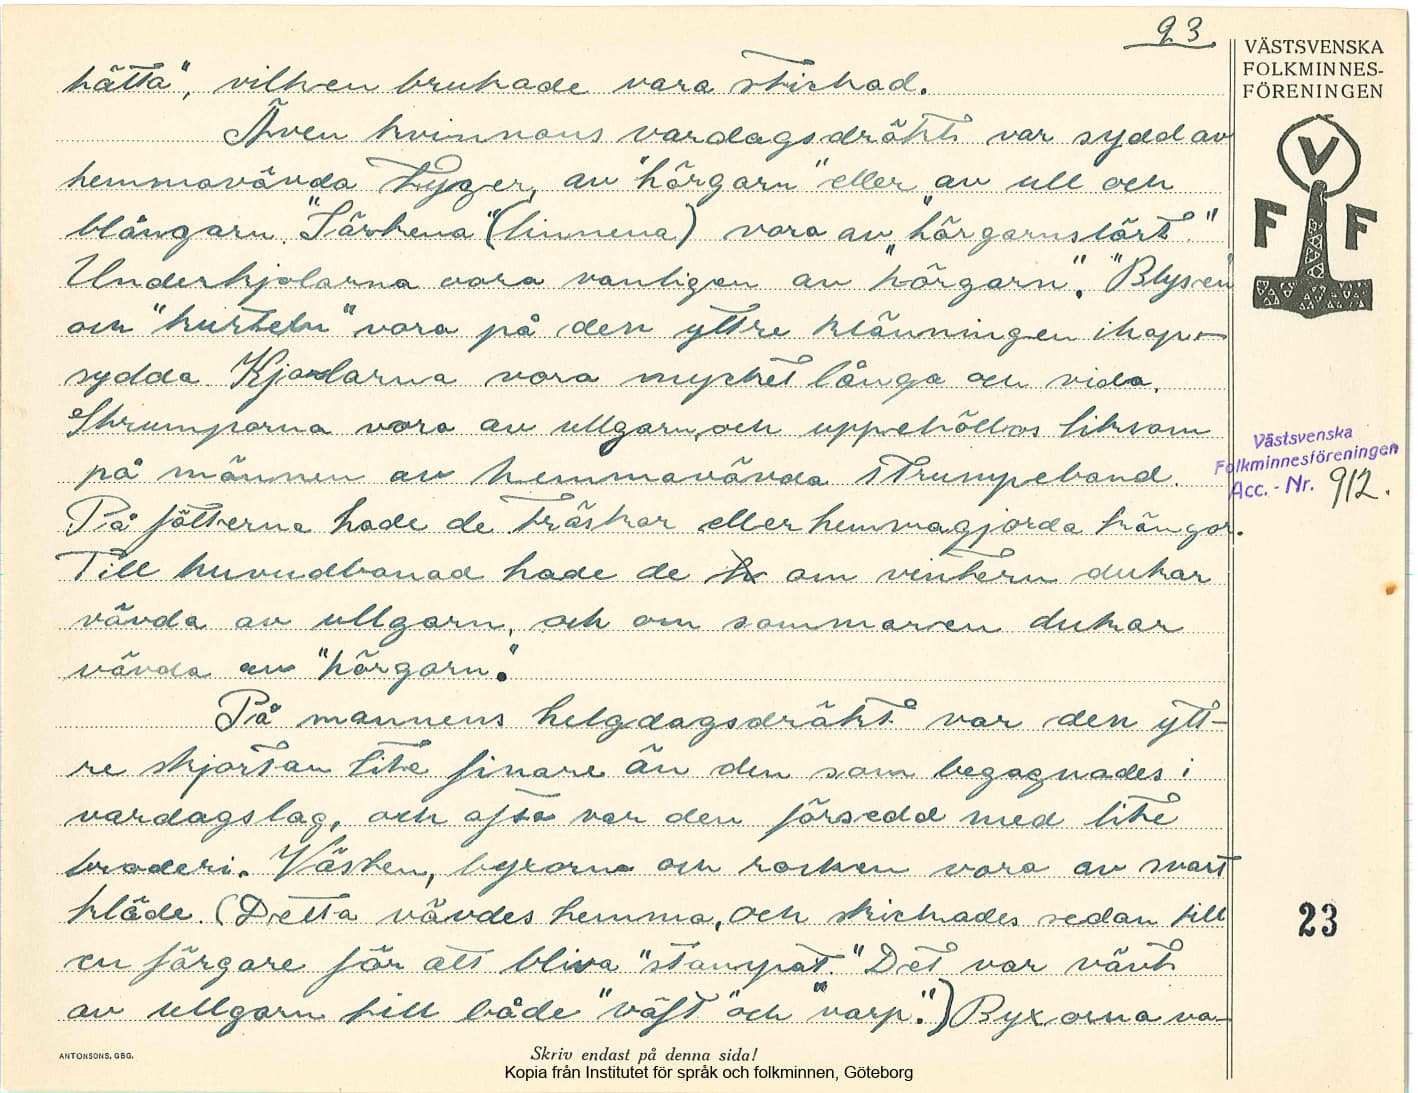 23
VÄSTSVENSKA
FOLKMINNES-
FÖRENINGEN
hätta", vilken brukade vara stickad.
Även kvinnans vardagsdräkt var sydd av
hemmavävda tyger, av "hörgarn" eller av ull och
blångarn. "Särkena" (linnena) vora av "hörgarnslärt."
Underkjolarna vora vanligen av "hörgarn". "Blysen"
och "kurteln" vora på den yttre klänningen ihop-
sydda. Kjolarna vora mycket långa och vida.
Strumporna vora av ullgarn, och uppehöllos liksom
på männen av hemmavävda strumpeband.
På fötterna hade de träskor eller hemmagjorda kängor.
Till huvudbonad hade de om vintern dukar
vävda av ullgarn, och om sommaren dukar
vävda av "hörgarn".
På mannens helgdagsdräkt var den ytt-
re skjortan lite finare än den som begagnades i
vardagslag, och ofta var den försedd med lite
broderi. Västen, byxorna och rocken vora av svart
kläde. (Detta vävdes hemma, och skickades sedan till
en färgare för att bliva "stampat." Det var vävt
av ullgarn till både "väft" och "varp".) Byxorna vo-
VFF
Västsvenska
Folkminnesföreningen
Acc.-Nr. 912.
23
ANTONSONS, GBG.
Skriv endast på denna sida!
Kopia från Institutet för språk och folkminnen, Göteborg